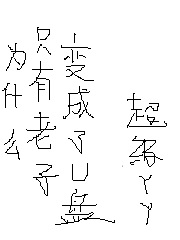 为什么
只有老子
变成了U盘
超丫丫